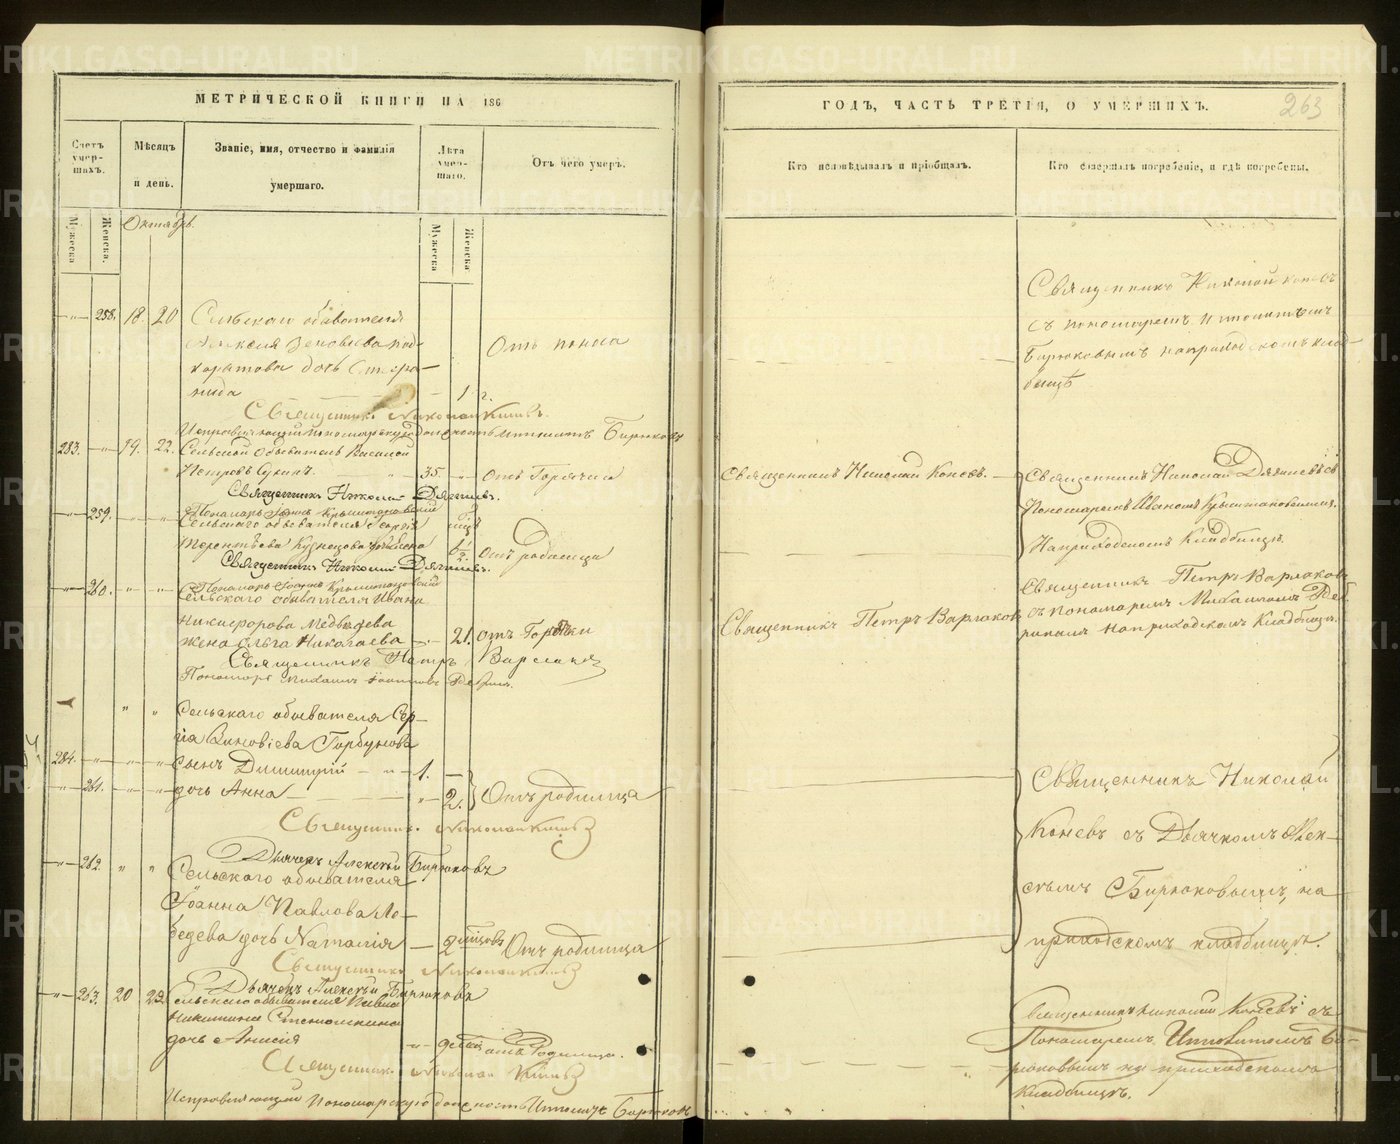 МЕТРИЧЕСКОЙ КНИГИ НА 186
Счетъ умер- шихъ.
Мѣсяцъ и день.
Званіе, имя, отчество и фамилія умершаго.
Лѣта умер- шаго.
Отъ чего умеръ.
Мужеска
Женска.
Октябрь.
Мужеска
Женска
258. 18. 20 Сельскаго обывателя
Алексія Зеновьева
дочь
1 г.
Отъ поноса
Священникъ Николай Коневъ.
Исправляющій пономарскую должность Ипполитъ Бирюковъ
283. 19. 22. Сельской обыватель Василій
Петровъ 35 Отъ Горячки
Священникъ Николай Дягилевъ.
Пономарь Іоаннъ
259. Сельскаго обывателя Георгія
Терентьева Кузнецова
Отъ родимца
Священникъ Николай Дягилевъ.
Пономарь Іоаннъ
260. Сельскаго обывателя Ивана
Никифорова Медведева
жена Ольга Николаева 21. отъ Горячки
Священникъ Петръ Варлаковъ
Пономарь Михаилъ
Сельскаго обывателя Сер-
гія Зиновіева Горбунова
284. сынъ Димитрій 1.
261. дочь Анна 2. Отъ родимца
Священникъ Николай Коневъ
Дьячекъ Алексѣй Бирюковъ
262. Сельскаго обывателя
Іоанна Павлова Ле-
бедева дочь Наталія 2 мѣсяцовъ Отъ родимца
Священникъ Николай Коневъ
Дьячекъ Алексѣй Бирюковъ
263. 20 22. Сельскаго обывателя
Никитина
дочь Анисія отъ Родимца.
Священникъ Николай Коневъ
Исправляющій Пономарскую должность Ипполитъ Бирюковъ
ГОДЪ, ЧАСТЬ ТРЕТІЯ, О УМЕРШИХЪ.
263
Кто исповѣдывалъ и пріобщалъ.
Кто совершалъ погребеніе, и гдѣ погребены.
Священникъ Николай Коневъ
съ пономаремъ Ипполитомъ
Бирюковымъ на приходскомъ клад-
бищѣ
Священникъ Николай Коневъ.
Священникъ Николай Дягилевъ съ
Пономаремъ Иваномъ
На приходскомъ Кладбищѣ.
Священникъ Петръ Варлаковъ
Священникъ Петръ Варлаковъ
съ пономаремъ Михаиломъ
на приходскомъ Кладбищѣ.
Священникъ Николай
Коневъ съ Дьячкомъ Алек-
сѣемъ Бирюковымъ, на
приходскомъ кладбищѣ.
Священникъ Николай Коневъ съ
Пономаремъ Ипполитомъ Би-
рюковымъ на приходскомъ
Кладбищѣ.
METRIKI.GASO-URAL.RU